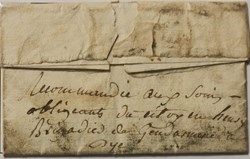 recommandée aux soins
obligeants du citoyen
Brigadier de Gendarmerie